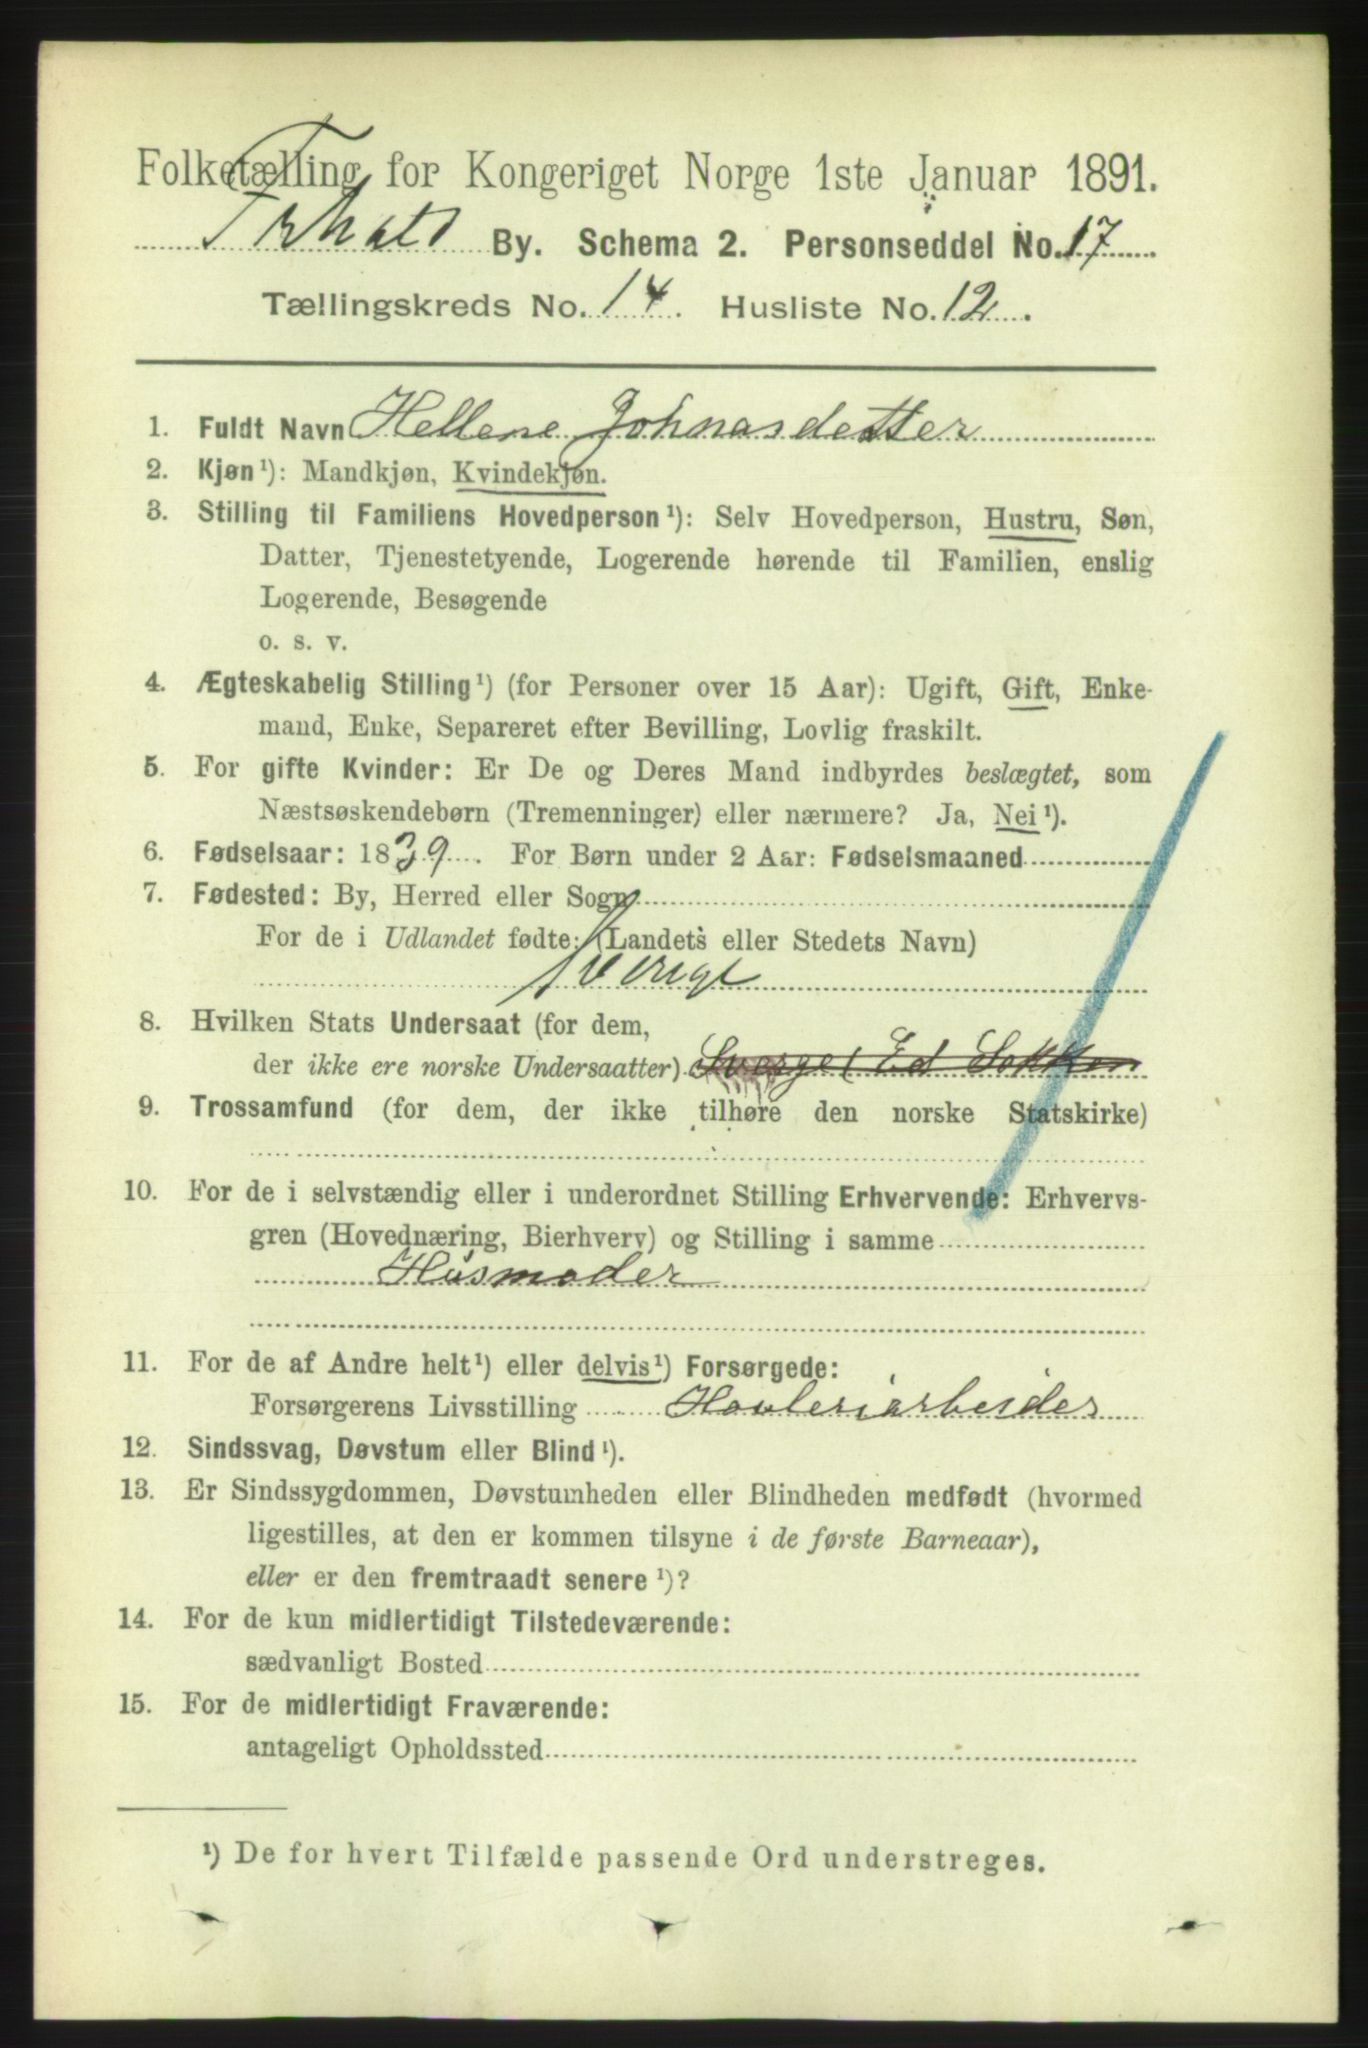 Folketælling for Kongeriget Norge 1ste Januar 1891.
Frhald By. Schema 2. Personseddel No. 17
Tællingskreds No. 14. Husliste No. 12.
1. Fuldt Navn Hellene Johnasdetter
2. Kjøn¹): Mandkjøn, Kvindekjøn.
3. Stilling til Familiens Hovedperson¹): Selv Hovedperson, Hustru, Søn,
Datter, Tjenestetyende, Logerende hørende til Familien, enslig
Logerende, Besøgende
o. s. v.
4. Ægteskabelig Stilling¹) (for Personer over 15 Aar): Ugift, Gift, Enke-
mand, Enke, Separeret efter Bevilling, Lovlig fraskilt.
5. For gifte Kvinder: Er De og Deres Mand indbyrdes beslægtet, som
Næstsøskendebørn (Tremenninger) eller nærmere? Ja, Nei¹).
6. Fødselsaar: 1839. For Børn under 2 Aar: Fødselsmaaned
7. Fødested: By, Herred eller Sogn
For de i Udlandet fødte: (Landets eller Stedets Navn)
Sverige
8. Hvilken Stats Undersaat (for dem,
der ikke ere norske Undersaatter) Sverge ( Ed Sokken
9. Trossamfund (for dem, der ikke tilhøre den norske Statskirke)
10. For de i selvstændig eller i underordnet Stilling Erhvervende: Erhvervs-
gren (Hovednæring, Bierhverv) og Stilling i samme
Husmoder
11. For de af Andre helt¹) eller delvis¹) Forsørgede:
Forsørgerens Livsstilling Høvleriarbeider
12. Sindssvag, Døvstum eller Blind¹).
13. Er Sindssygdommen, Døvstumheden eller Blindheden medfødt (hvormed
ligestilles, at den er kommen tilsyne i de første Barneaar),
eller er den fremtraadt senere¹)?
14. For de kun midlertidigt Tilstedeværende:
sædvanligt Bosted
15. For de midlertidigt Fraværende:
antageligt Opholdssted
¹) De for hvert Tilfælde passende Ord understreges.